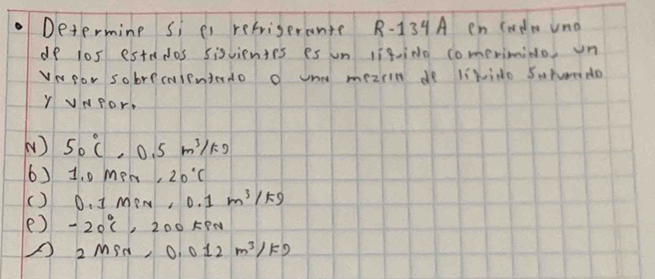 • Determine si el refrigerante R-134A en cada uno
de los estados siguientes es un líquido comprimido, un
vapor sobrecalentado o una mezcla de líquido saturado
y vapor.
a) 50°C, 0.5 m³/kg
b) 1.0 MPa, 20°C
c) 0.1 MPa, 0.1 m³/kg
e) -20°C, 200 KPa
f) 2 MPa, 0.012 m³/kg